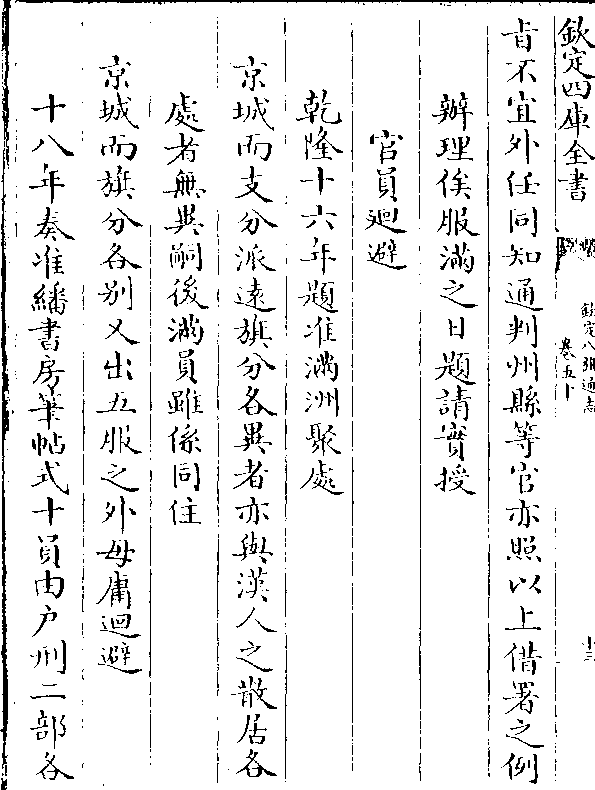 欽定四庫全書
欽定八旗通志
卷五十
十三
肯不宜外任同知通判州縣等官亦照以上借署之例
辦理俟服滿之日題請實授
官員廻避
乾隆十六年題准滿洲聚處
京城而支分派遠旗分各異者亦與漢人之散居各
處者無異嗣後滿員雖係同住
京城而旗分各别又出五服之外毋庸迴避
十八年奏准繙書房筆帖式十員由户刑二部各